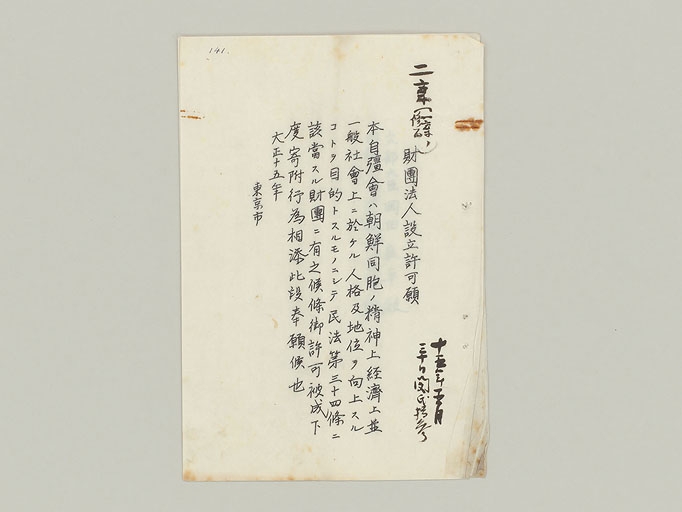 141.
財團法人設立許可願
本自彊會ハ朝鮮同胞ノ精神上経濟上並
一般社會上ニ於ケル人格及地位ヲ向上スル
コトヲ目的トスルモノニシテ民法第三十四條ニ
該當スル財團ニ有之候條御許可被成下
度寄附行為相添此段奉願候也
大正十五年
東京市